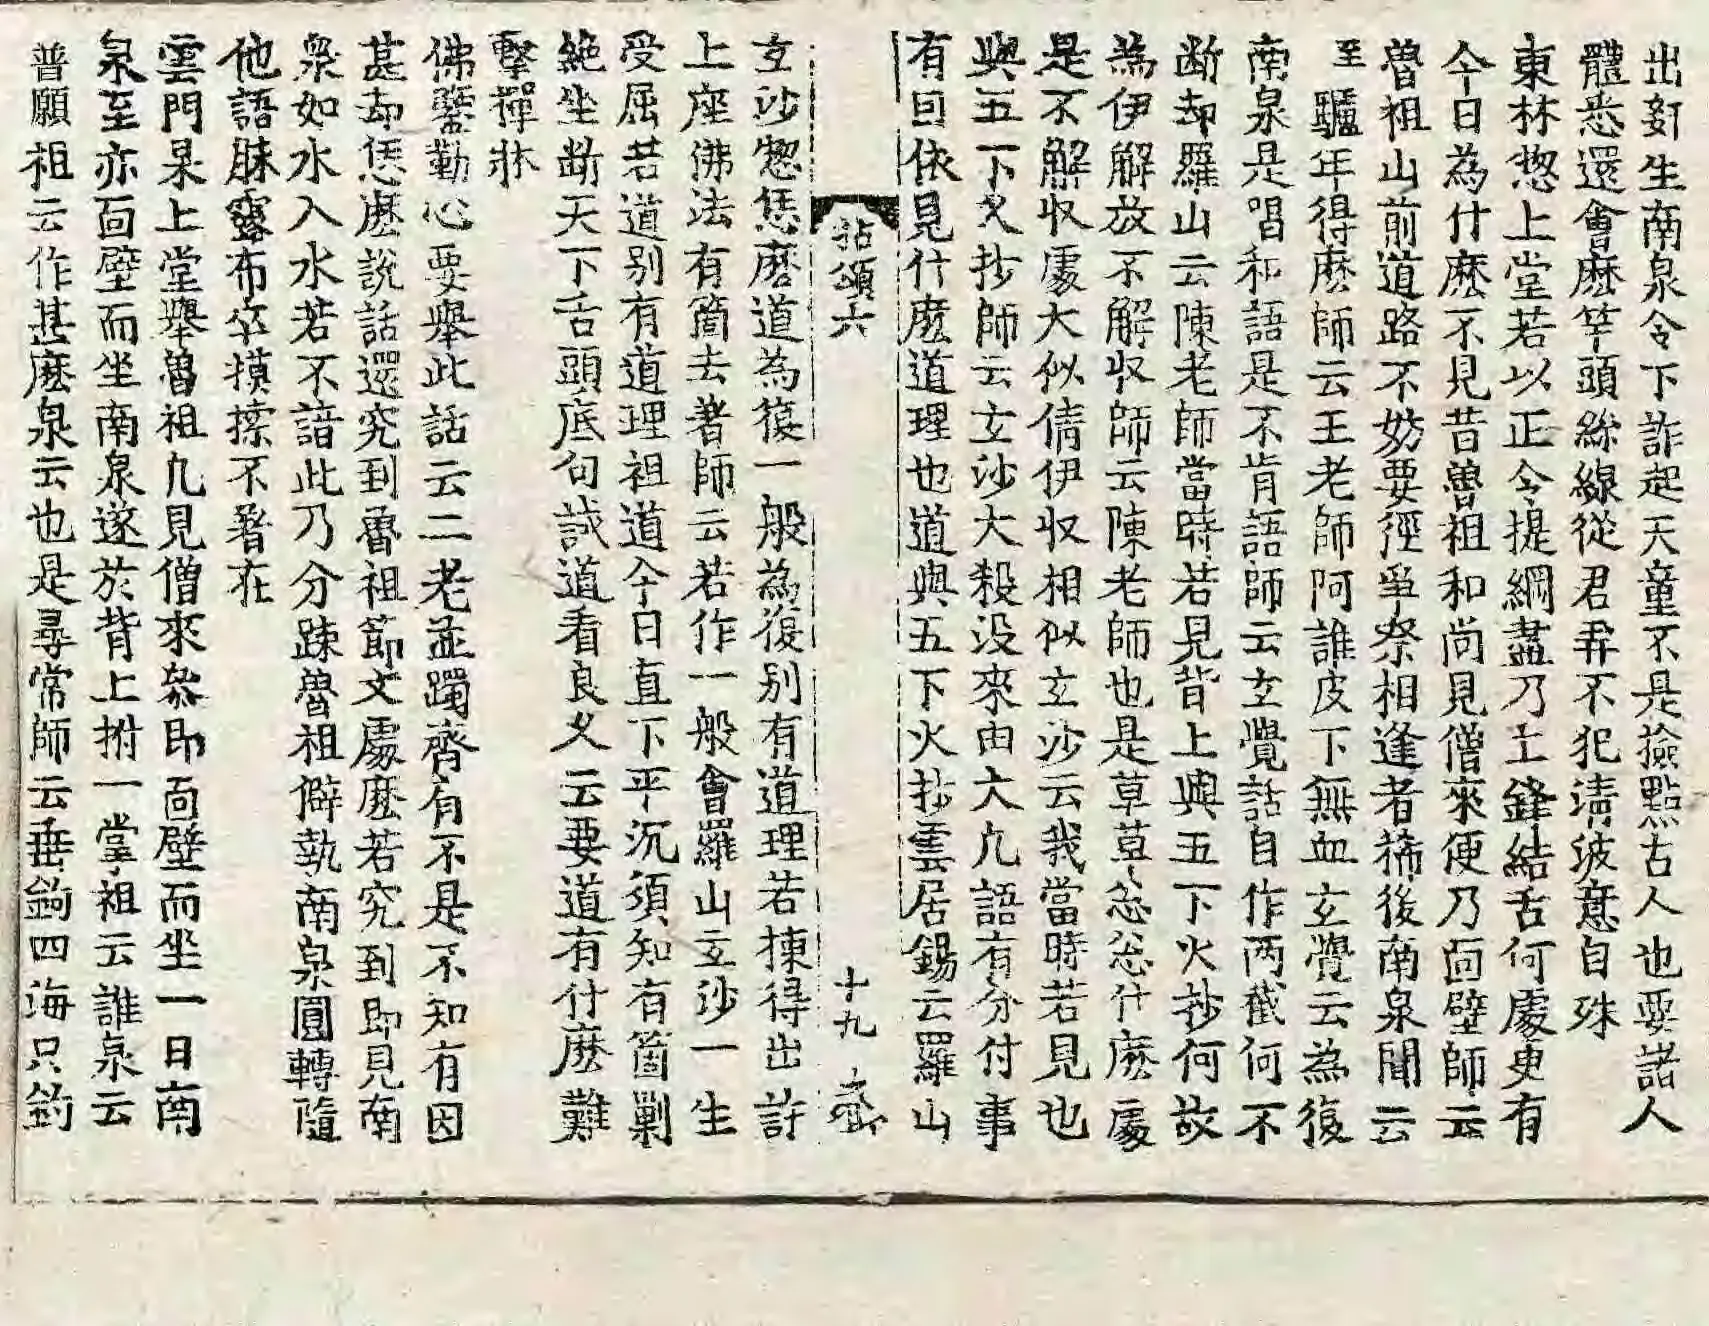 出新生南泉令下詐起天童不是撿點古人也要諸人
體悉還會麽竿頭絲線從君弄不犯淸波意自殊
東林惣上堂若以正令提綱盡乃亡鋒結舌何處更有
今日為什麽不見昔魯祖和尚見僧來便乃面壁師云
魯祖山前道路不妨要徑爭奈相逢者稀後南泉聞云
至驢年得麽師云王老師阿誰皮下無血玄覺云為復
南泉是唱和語是不肯語師云玄覺話自作两截何不
断却羅山云陳老師當時若見背上與五下火抄何故
為伊解放不解収師云陳老師也是草草忩忩什麽處
是不解収處大似倩伊収相似玄沙云我當時若見也
與五下火抄師云玄沙大殺没來由大凢語有分付事
有囙依見什麽道理也道與五下火抄雲居錫云羅山
拈頌六 十九
玄沙惣恁麽道為復一般為復别有道理若揀得出許
上座佛法有箇去著師云若作一般會羅山玄沙一生
受屈若道别有道理祖道今日直下平沉須知有箇剿
絶坐断天下舌頭底句試道看良久云要道有什麽難
擊禪牀
佛鑒勤心要舉此話云二老並躅齊有不是不知有因
甚却恁麽說話還究到魯祖節文處麽若究到即見南
泉如水入水若不諳此乃分踈魯祖僻執南泉圓轉隨
他語脉露布卒摸㨹不著在
雲門杲上堂擧魯祖凢見僧來叅即面壁而坐一日南
泉至亦面壁而坐南泉遂於背上拊一掌祖云誰泉云
普願祖云作甚麽泉云也是尋常師云垂鉤四海只釣